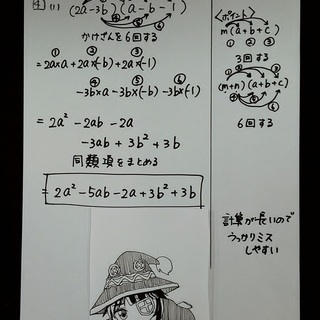 4 (1) (2a-3b)(a-b-1)
かけざんを6回する
① ② ③
=2a×a+2a×(-b)+2a×(-1)
④ ⑤ ⑥
-3b×a-3b×(-b)-3b×(-1)
=2a²-2ab-2a
-3ab+3b²+3b
同類項をまとめる
=2a²-5ab-2a+3b²+3b
<ポイント>
m(a+b+c)
① ② ③
3回する
① ② ③
(m+n)(a+b+c)
④ ⑤ ⑥
6回する
計算が長いので
うっかりミス
しやすい